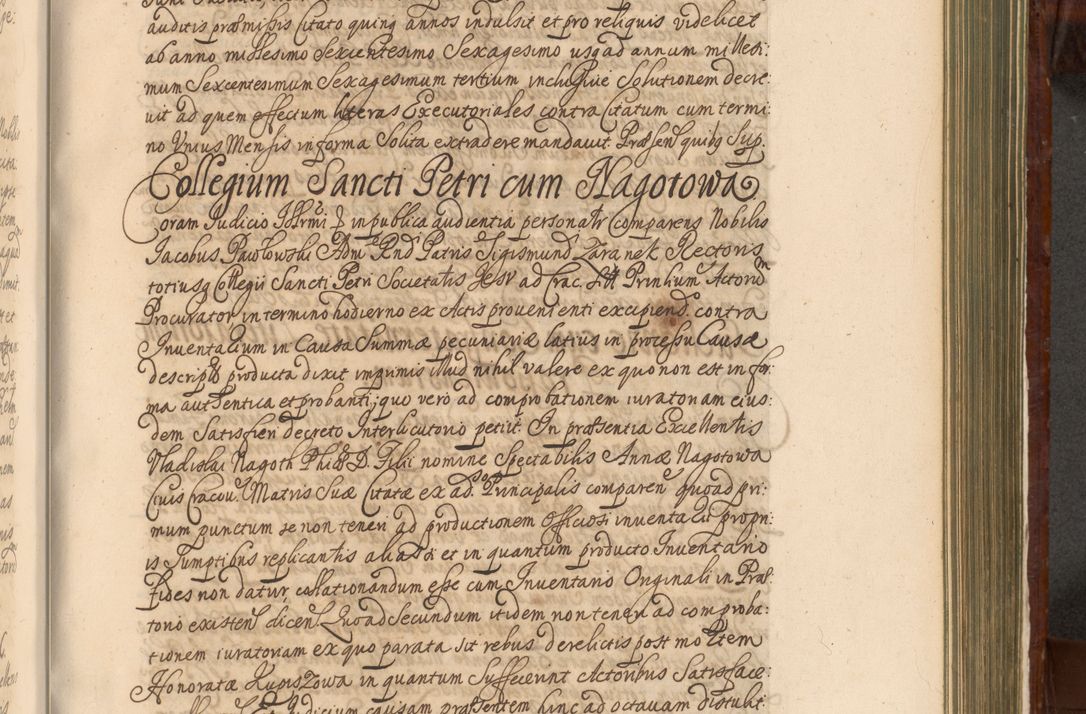 auditis præmissis Citato quinq annos indulsit et pro reliquis videlicet
ab anno millesimo Sexcentesimo Sexagesimo usq ad annum millesi:
mum Sexcentesimum Sexagesimum tertium inclusive Solutionem decre:
vit ad quem effectum literas Executoriales contra Citatum cum termi:
no Unius Mensis in forma Solita extradere mandavit. Præsen quibq Sup.
Collegium Sancti Petri cum Nagotowa
Coram Judicio in publica audientia personalr Comparens Nobilis
Jacobus Pawlowski Adm Rnd Patris Sigismund Zaranek Rectoris
totiusq Collegii Sancti Petri Societatis Jesv ad Crac. Prinlium Actorū
Procurator in termino hodierno ex Actis provenienti excipiend contra
Inventarium in Causa Summæ pecuniariæ latius in processu Causæ
descripto producta dixit imprimis illud nihil valere ex quo non est in for:
ma authentica et probanti, quo vero ad comprobationem iuratoriam eius:
dem Satisfieri decreto Interlocutorio petiit In præsentia Excellentis
Vladislai Nagoth Phi& D. Filii nomine Spectabilis Annæ Nagotowa
Civis Cracov. Matris Suæ Citatæ ex adso Principalis comparen quoad pri:
mum punctum se non teneri ad productionem Officiosi inventarii propri:
is Sumptibus replicantis et in quantum producto Inventario
Fides non datur, collationandum esse cum Inventario Originali in Præ:
torio existen dicen. Quoad Secundum itidem non teneri ad comproba:
tionem iuratoriam ex quo parata sit rebus derelictis post mortem
Honoratæ Kupiszowa in quantum Suffecerint Actoribus Satisface:
Judicium causam præsentem hinc ad octavam distulit.